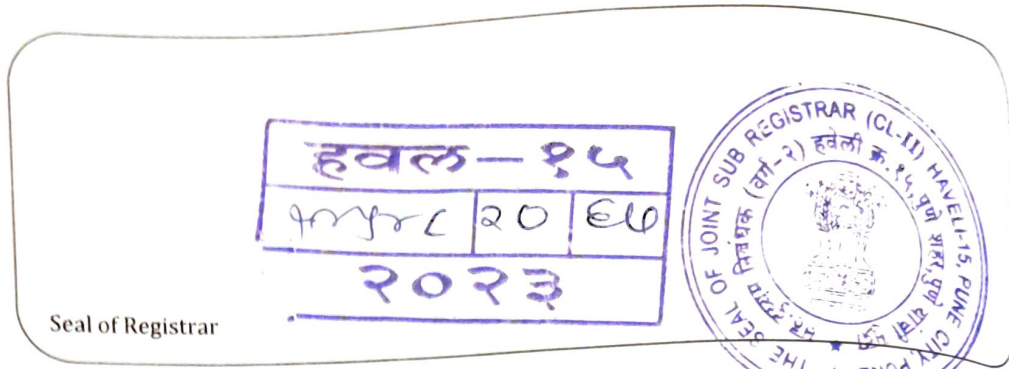 हवल – १५
२० ६७
२०२३
Seal of Registrar
THE SEAL OF JOINT SUB REGISTRAR (CL-II) HAVELI-15, PUNE CITY, PUNE
सह दुय्यम निबंधक (वर्ग-२) हवेली क्र. १५, पुणे शहर, पुणे यांची मुद्रा